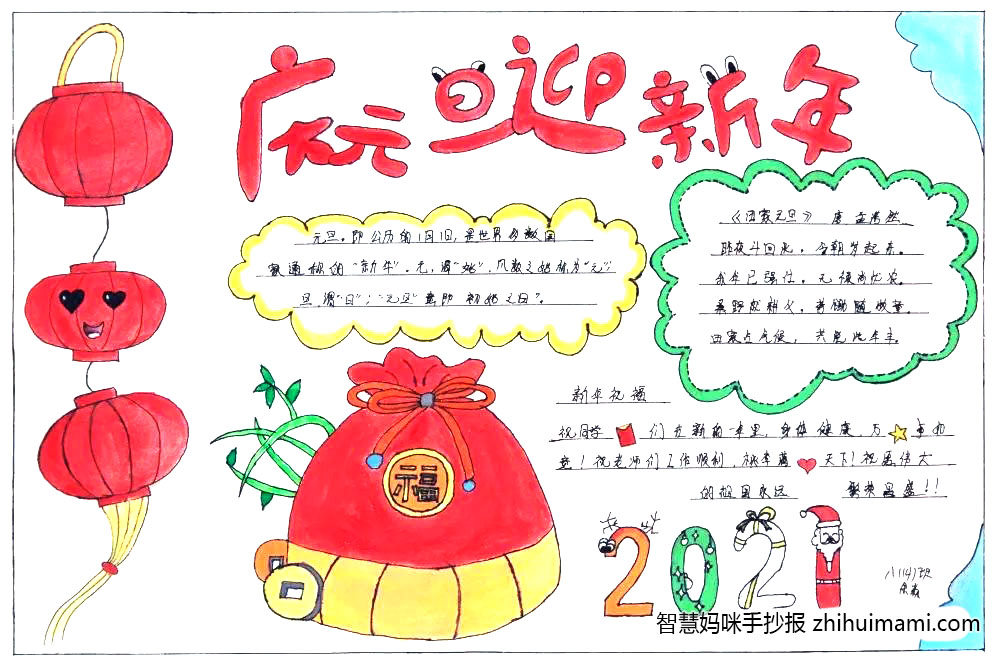 庆元旦迎新年
元旦,即公历的1月1日,是世界多数国
家通称的“新年”。元,谓“始”,凡数之始称为“元”;
旦,谓“日”;“元旦”意即“初始之日”。
《田家元旦》 唐 孟浩然
昨夜斗回北,今朝岁起东。
我年已强仕,无禄尚忧农。
桑野就耕父,荷锄随牧童。
田家占气候,共说此年丰。
新年祝福
祝同学们在新的一年里,身体健康,万事如
意!祝老师们工作顺利,桃李满天下!祝愿伟大
的祖国永远 繁荣昌盛!!
福
2021
八(14)班
智慧妈咪手抄报 zhihuimami.com